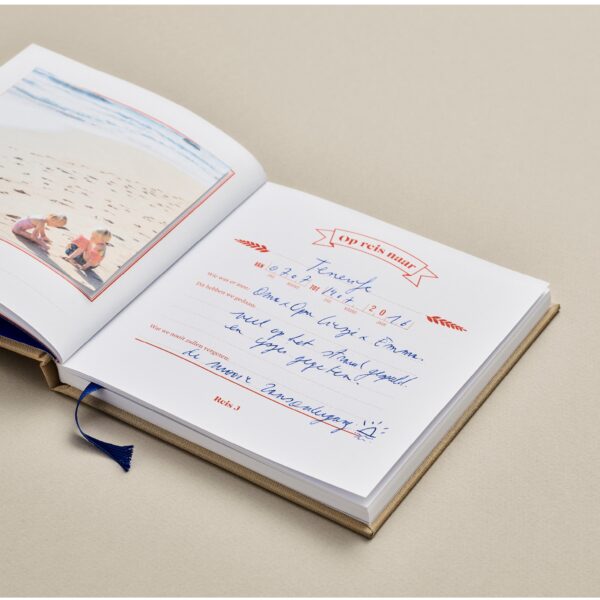 Op reis naar
Tenerife
VAN 07 07 TOT 19 07 2016
Wie was er mee: Oma x Opa Luigi x Emma.
Dit hebben we gedaan: veel op het strand gespeeld.
en ijsjes gegeten.
Wat we nooit zullen vergeten:
de mooie zonsondergang
Reis 3